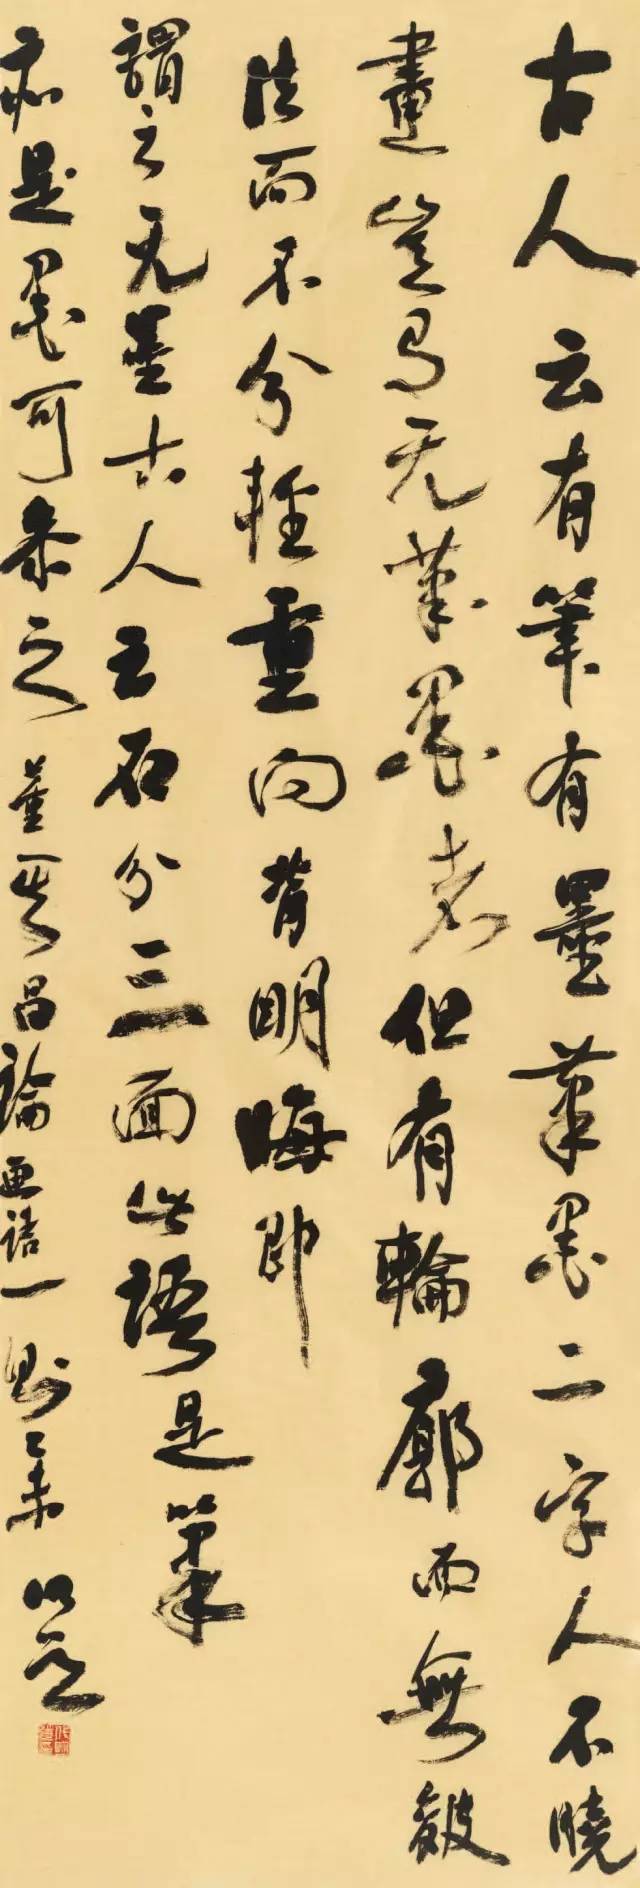 古人云有筆有墨筆墨二字人不曉
畫豈有无筆墨者但有輪廓而無皴
法而不分輕重向背明晦即
謂之无墨古人云石分三面此語是筆
亦是墨可參之 董其昌論畫語一則乙未